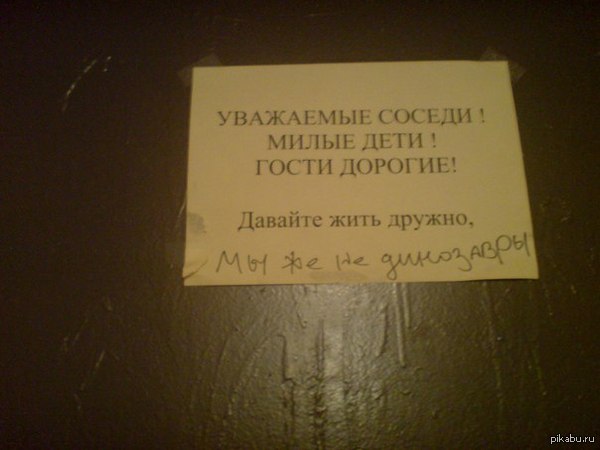 УВАЖАЕМЫЕ СОСЕДИ !
МИЛЫЕ ДЕТИ !
ГОСТИ ДОРОГИЕ!
Давайте жить дружно,
Мы же не динозавры
pikabu.ru